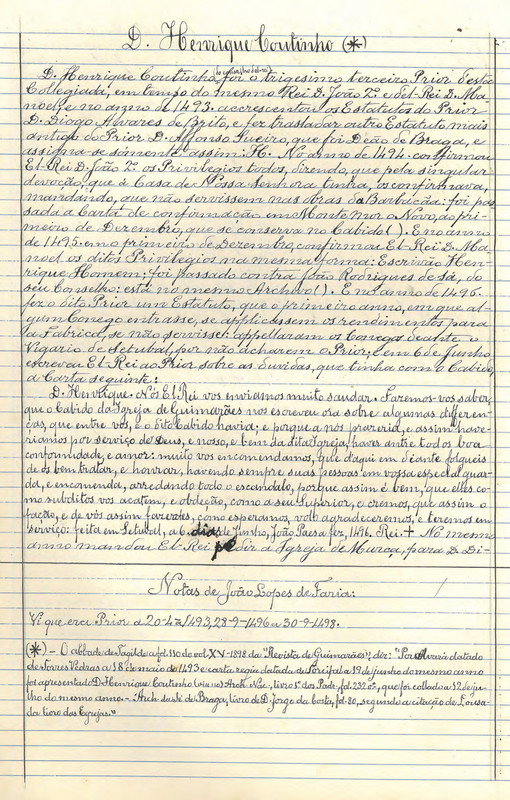 D. Henrique Coutinho (*)
D. Henrique Coutinho, foi o trigesimo terceiro Prior desta
Collegiada, em tempo do mesmo Rei D. João 2º e del-Rei D. Ma-
noel, e no anno de 1493. accrescentou os Estatutos do Prior
D. Diogo Alvares de Brito, e fez trasladar outro Estatuto mais
antigo do Prior D. Affonso Gueiro, que foi Deão de Braga, e
assigna-se sómente assim: H. No anno de 1494. confirmou
El-Rei D. João 2º os Privilegios todos, dizendo, que pela singular
devoção, que á Casa de Nossa Senhora tinha, os confirmava,
mandando, que não servissem nas obras da Barbacãa: foi pas-
sada a Carta de confirmação em Monte Mor o Novo, ao pri-
meiro de Dezembro, que se conserva no Cabido ( ). E no anno
de 1495. em o primeiro de Dezembro, confirmou El-Rei D. Ma-
noel os ditos Privilegios na mesma forma: Escrivão Hen-
rique Homem; foi passado contra João Rodrigues de Sá, do
seu Conselho: está no mesmo Archivo ( ). E no anno de 1496.
fez o dito Prior um Estatuto, que o primeiro anno, em que al-
gum Conego entrasse, se applicassem os rendimentos para
a Fabrica, se não servisse: appellaram os Conegos deante o
Vigario de Setubal, por não acharem o Prior, e em 6 de Junho
escreveu El-Rei ao Prior sobre as duvidas, que tinha com o Cabido,
a Carta seguinte:
D. Henrique. Nós El-Rei vos enviamos muito saudar. Fazemos-vos saber,
que o Cabido da Igreja de Guimarães nos escreveu ora sobre algumas differen-
ças, que entre vós, e o dito Cabido havia; e porque a nós prazeria, e assim have-
riamos por serviço de Deus, e nosso, e bem da dita Igreja, haver antre todos boa
conformidade, e amor: muito vos encomendamos, que d'aqui em diante folgueis
de os bem tratar, e honrar, havendo sempre suas pessoas em vossa especial guar-
da, e encomenda, arredando todo o escandalo, porque assim é bem, que elles co-
mo subditos vos acatem, e obdeção, como a seu Superior, e cremos, que assim o
fação, e de vós assim fazerdes, como esperamos, volo agradeceremos, e teremos em
serviço: feita em Setubal, a 6. dias de Junho, João Paes a fez, 1496. Rei. + No mesmo
anno mandou El-Rei pedir a Igreja de Murça, para D. Di-
Notas de João Lopes de Faria:
Vi que era Prior a 20-4-1493, 28-9-1496 a 30-9-1498.
(*) - O abbade de Tagilde a fol. 110 do vol. XV-1898 da "Revista de Guimarães", diz: "Por datado
de Torres Vedras a 18 de maio de 1493 e carta regia datada de a 19 de junho do mesmo anno
foi apresentado D. Henrique Coutinho Arch. Nac., livro 1º dos Padr., fol. 232 vº, que foi collado a 12 de ju-
lho do mesmo anno.- Arch. da Sé de Braga, livro de D. Jorge da Costa, fol. 80, segundo a citação de Lousa-
da livro das Egrejas."